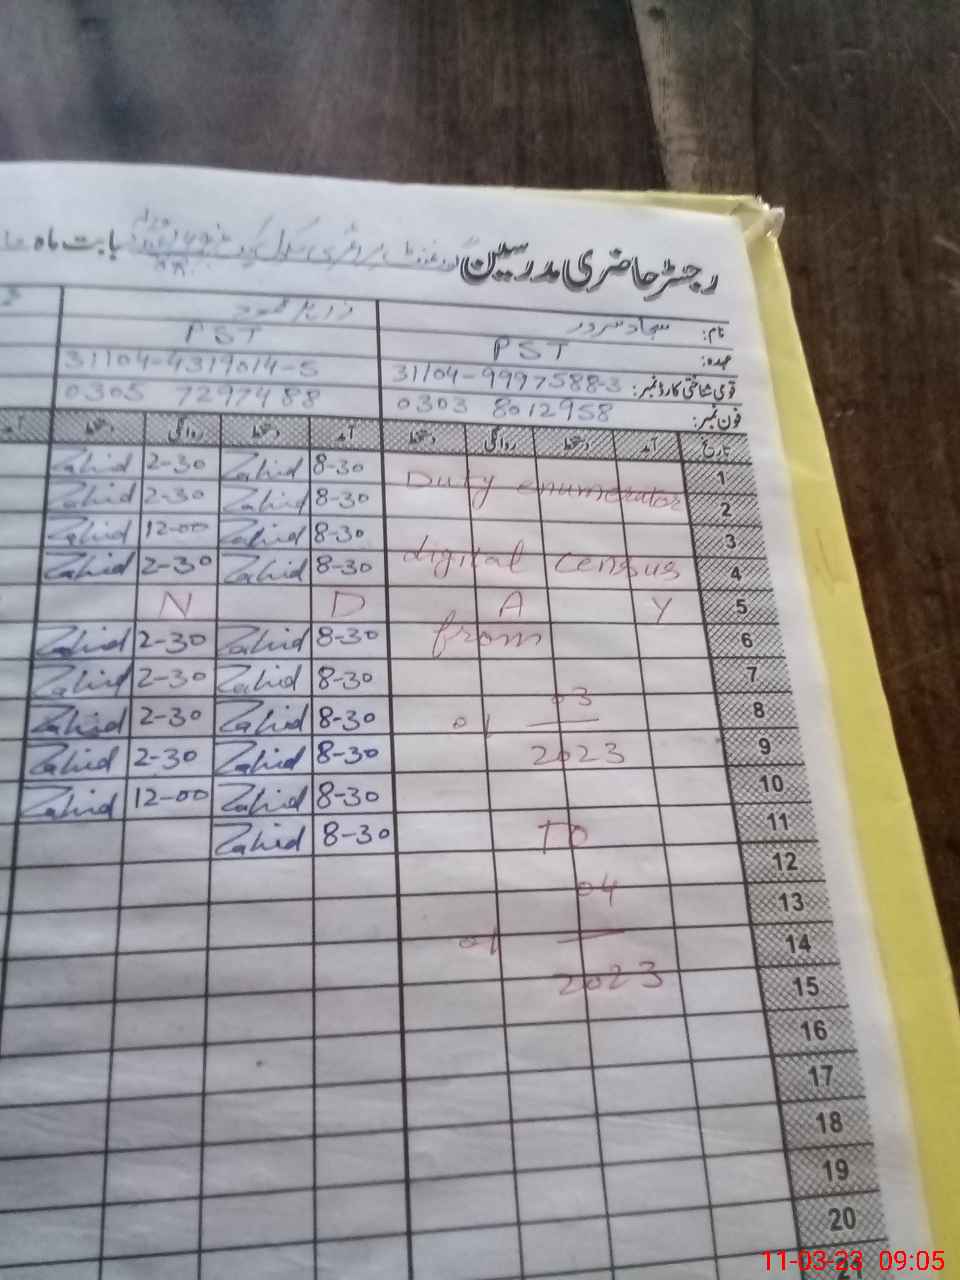 رجسٹر حاضری مدرسین گورنمنٹ پرائمری سکول بابت ماہ
نام: سجاد سرور زاہد محمود
عہدہ: PST PST
قومی شناختی کارڈ نمبر: 31104-9997588-3 31104-4319014-5
فون نمبر: 0303 8012958 0305 7297488
تاریخ آمد دستخط روانگی دستخط آمد دستخط روانگی دستخط آمد
1 Duty enumerator 8-30 Zahid 2-30 Zahid
2 8-30 Zahid 2-30 Zahid
3 digital census 8-30 Zahid 12-00 Zahid
4 8-30 Zahid 2-30 Zahid
5 Y A D N
6 from 8-30 Zahid 2-30 Zahid
7 8-30 Zahid 2-30 Zahid
8 01 03 2023 8-30 Zahid 2-30 Zahid
9 8-30 Zahid 2-30 Zahid
10 8-30 Zahid 12-00 Zahid
11 TO 8-30 Zahid
12
13 01 04 2023
14
15
16
17
18
19
20
21
11-03-23 09:05